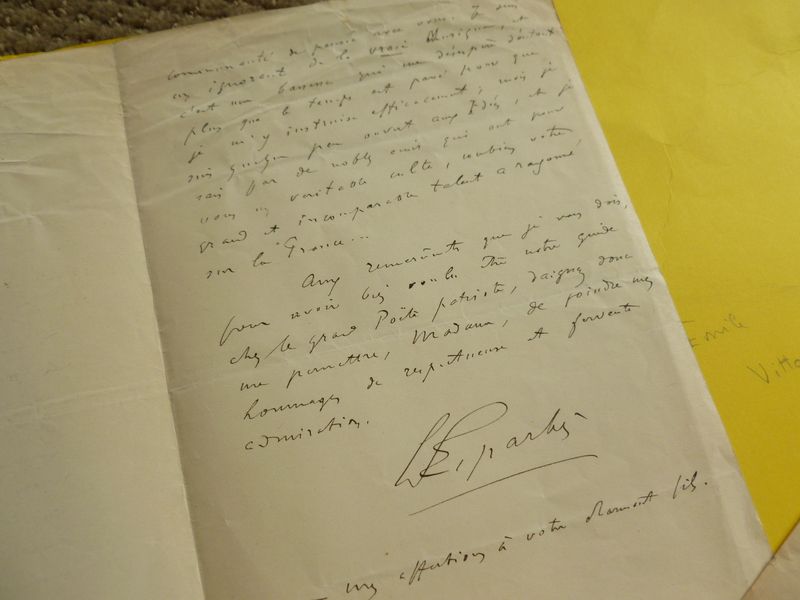 communauté de pensée avec vous. Je suis
un ignorant de la vraie Musique, et
c'est une qui me d'autant
plus que le temps est passé pour que
je m'y instruise efficacement; mais je
suis quelque peu ouvert aux Idées, et je
sais par de nobles amis qui ont pour
vous un véritable culte, combien votre
grand et incomparable talent a rayonné
sur la France...
Aux remerciements que je vous dois,
pour avoir bien voulu être notre guide
chez le grand Poète patriote, daignez donc
me permettre, Madame, de joindre mes
hommages de respectueuse et fervente
admiration.
mes affections à votre charmant fils.
Emile